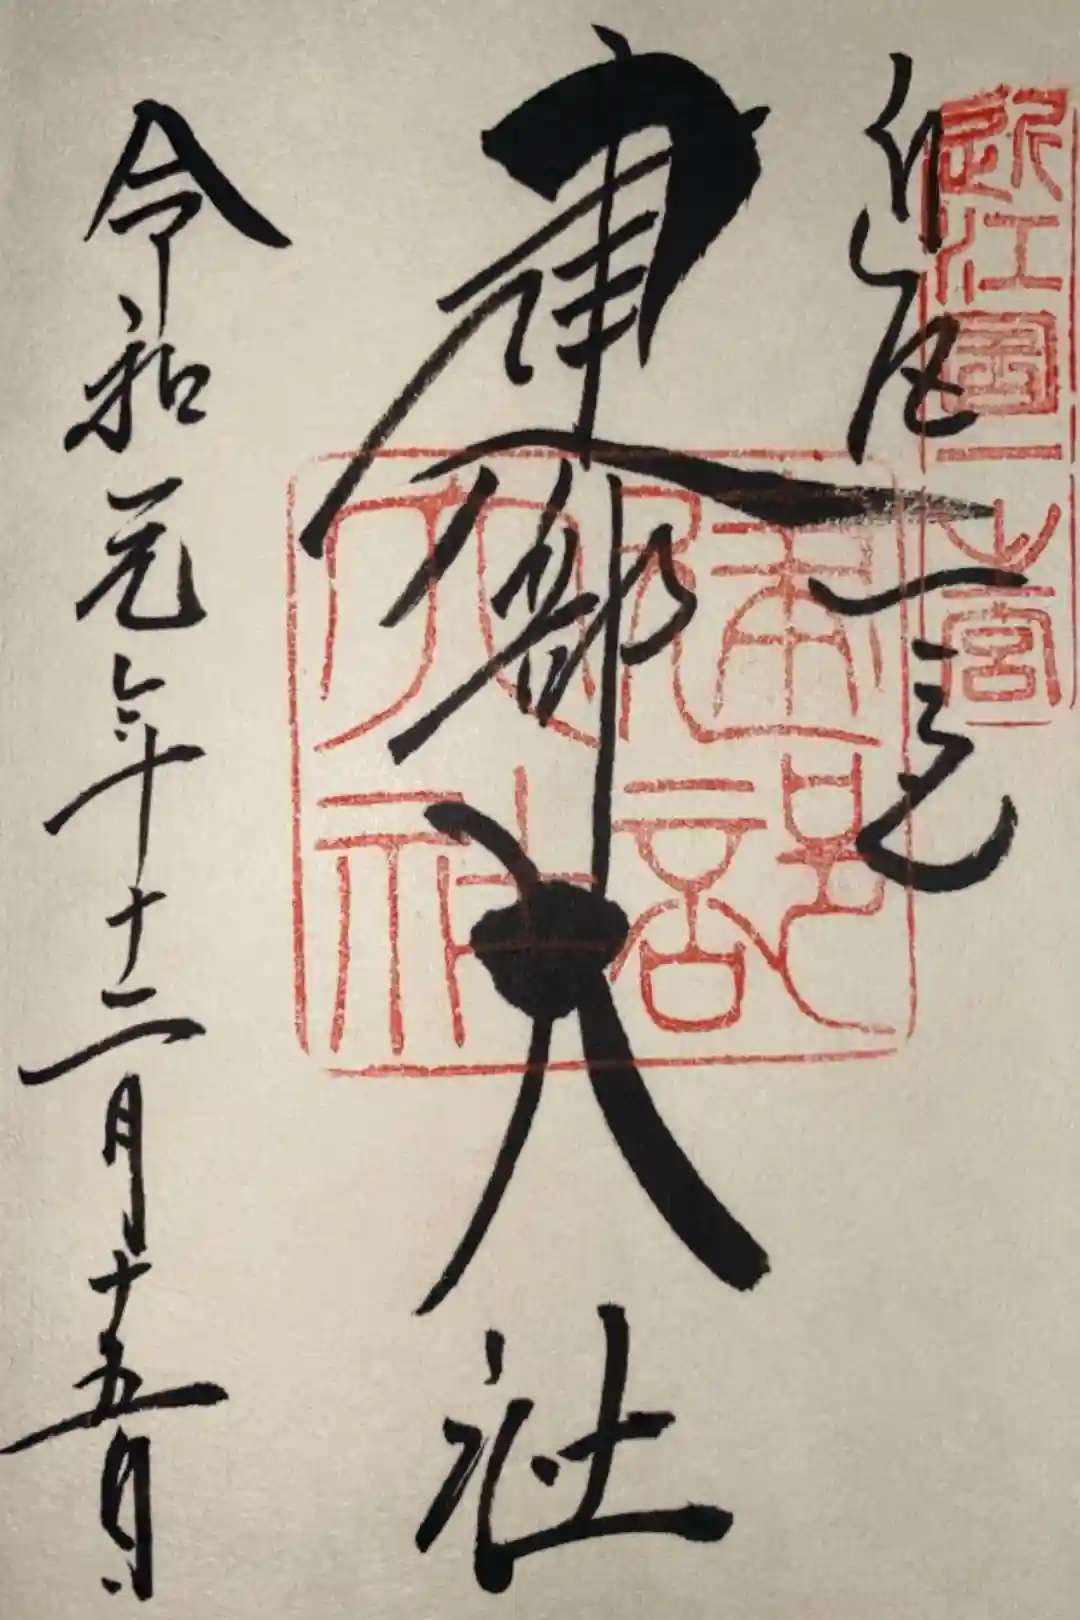 近江国一之宮
近江一宮
建部大社
建部大社
令和元年十二月十五日